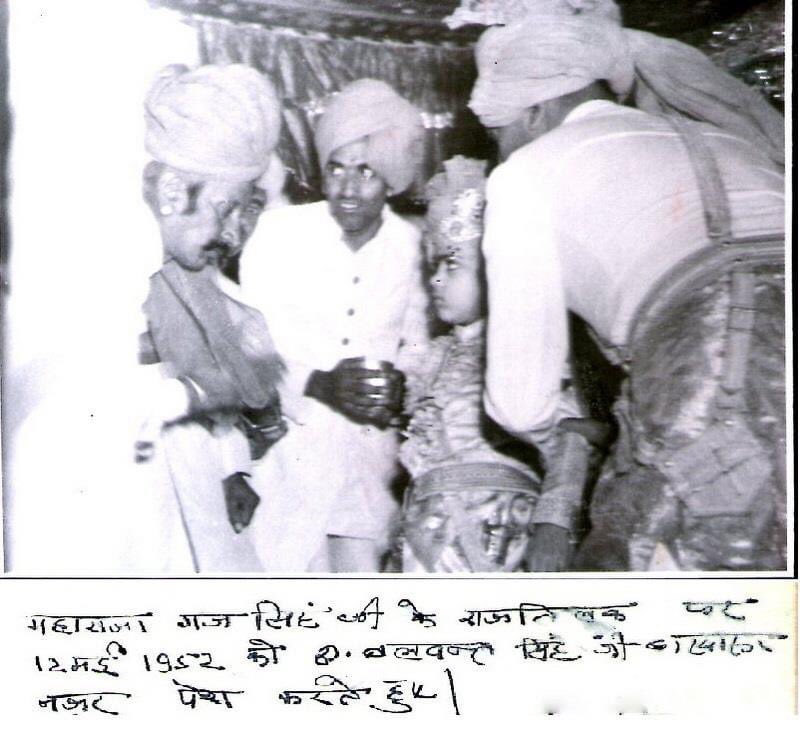 महाराजा गज सिहं जी के राजतिलक पर
12 मई 1952 को ठा. बलवन्त सिंह जी
नज़र पेश करते हुए।